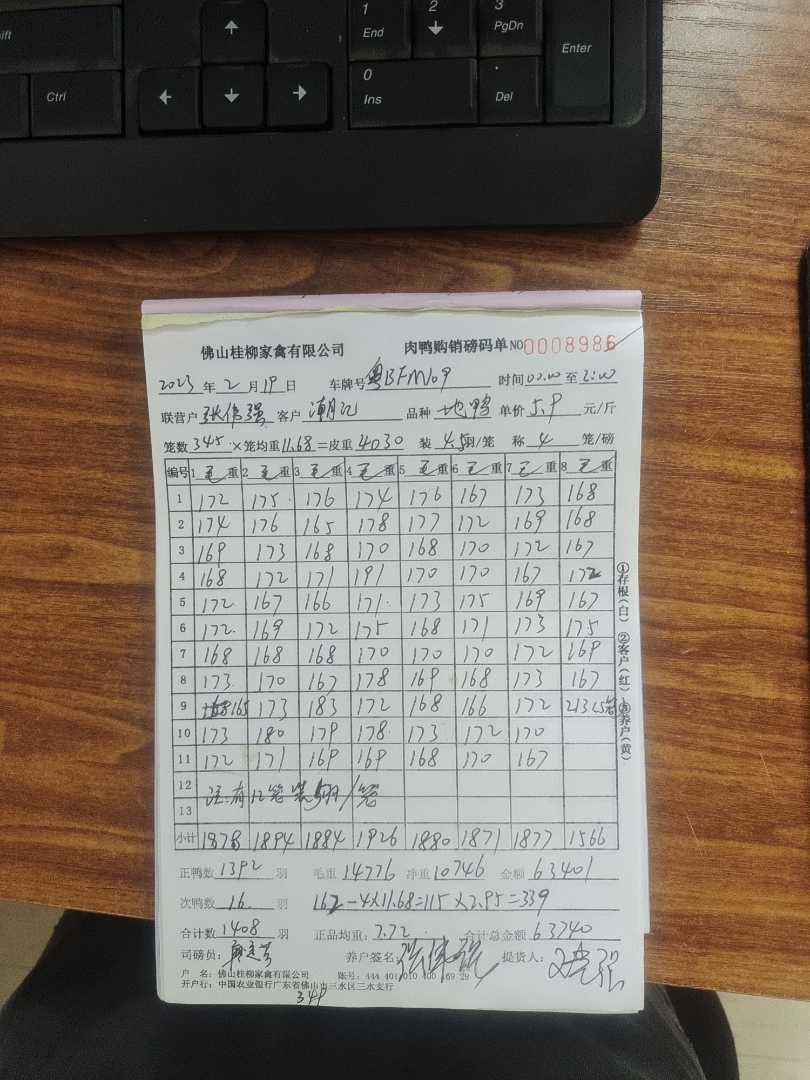 ift
Ctrl
1 End
2
3 PgDn
Enter
0 Ins
. Del
佛山桂柳家禽有限公司 肉鸭购销磅码单 NO 0008986
2023 年 2 月 19 日 车牌号 粤BFM109 时间 00:00 至 2:00
联营户 张伟强 客户 潮记 品种 地鸭 单价 5.9 元/斤
笼数 345 ×笼均重 11.68 =皮重 4030 装 4.5 羽/笼 称 4 笼/磅
编号 1 毛重 2 毛重 3 毛重 4 毛重 5 毛重 6 毛重 7 毛重 8 毛重
1 172 175 176 174 176 167 173 168
2 174 176 165 178 177 172 169 168
3 169 173 168 170 168 170 172 167
4 168 172 171 191 170 170 167 172
5 172 167 166 171 173 175 169 167
6 172 169 172 175 168 171 173 175
7 168 168 168 170 170 170 172 169
8 173 170 167 178 169 168 173 167
9 165 173 183 172 168 166 172 213 (5笼
10 173 180 179 178 173 172 170
11 172 171 169 169 168 170 167
12 注:有12笼装5羽/笼
13
小计 1878 1894 1884 1926 1880 1871 1877 1566
正鸭数 1392 羽 毛重 14776 净重 10746 金额 63401
次鸭数 16 羽 162-4×11.68=115×2.95=339
合计数 1408 羽 正品均重: 7.72 合计总金额 63740
司磅员: 养户签名: 张伟强 提货人:
户 名: 佛山桂柳家禽有限公司 账号: 444 401 010 400 169 29
开户行: 中国农业银行广东省佛山市三水区三水支行
349
①存根(白) ②客户(红) ③养户(黄)